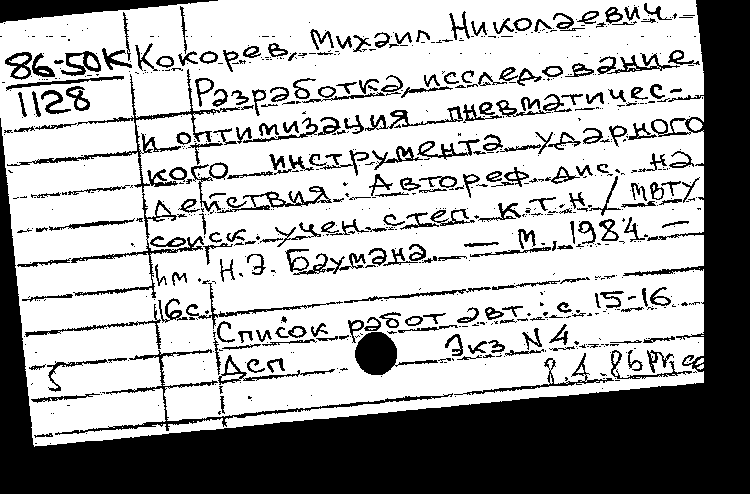 86-50К Кокорев, Михаил Николаевич.
1128 Разработка, исследование
и оптимизация пневматичес-
кого инструмента ударного
действия: Автореф. дис. на
соиск. учен. степ. к.т.н. / МВТУ
им. Н.Э. Баумана. — М., 1984. —
16с.
Список работ авт.: с. 15-16
Дсп. Экз. N4.
5 8.4.86